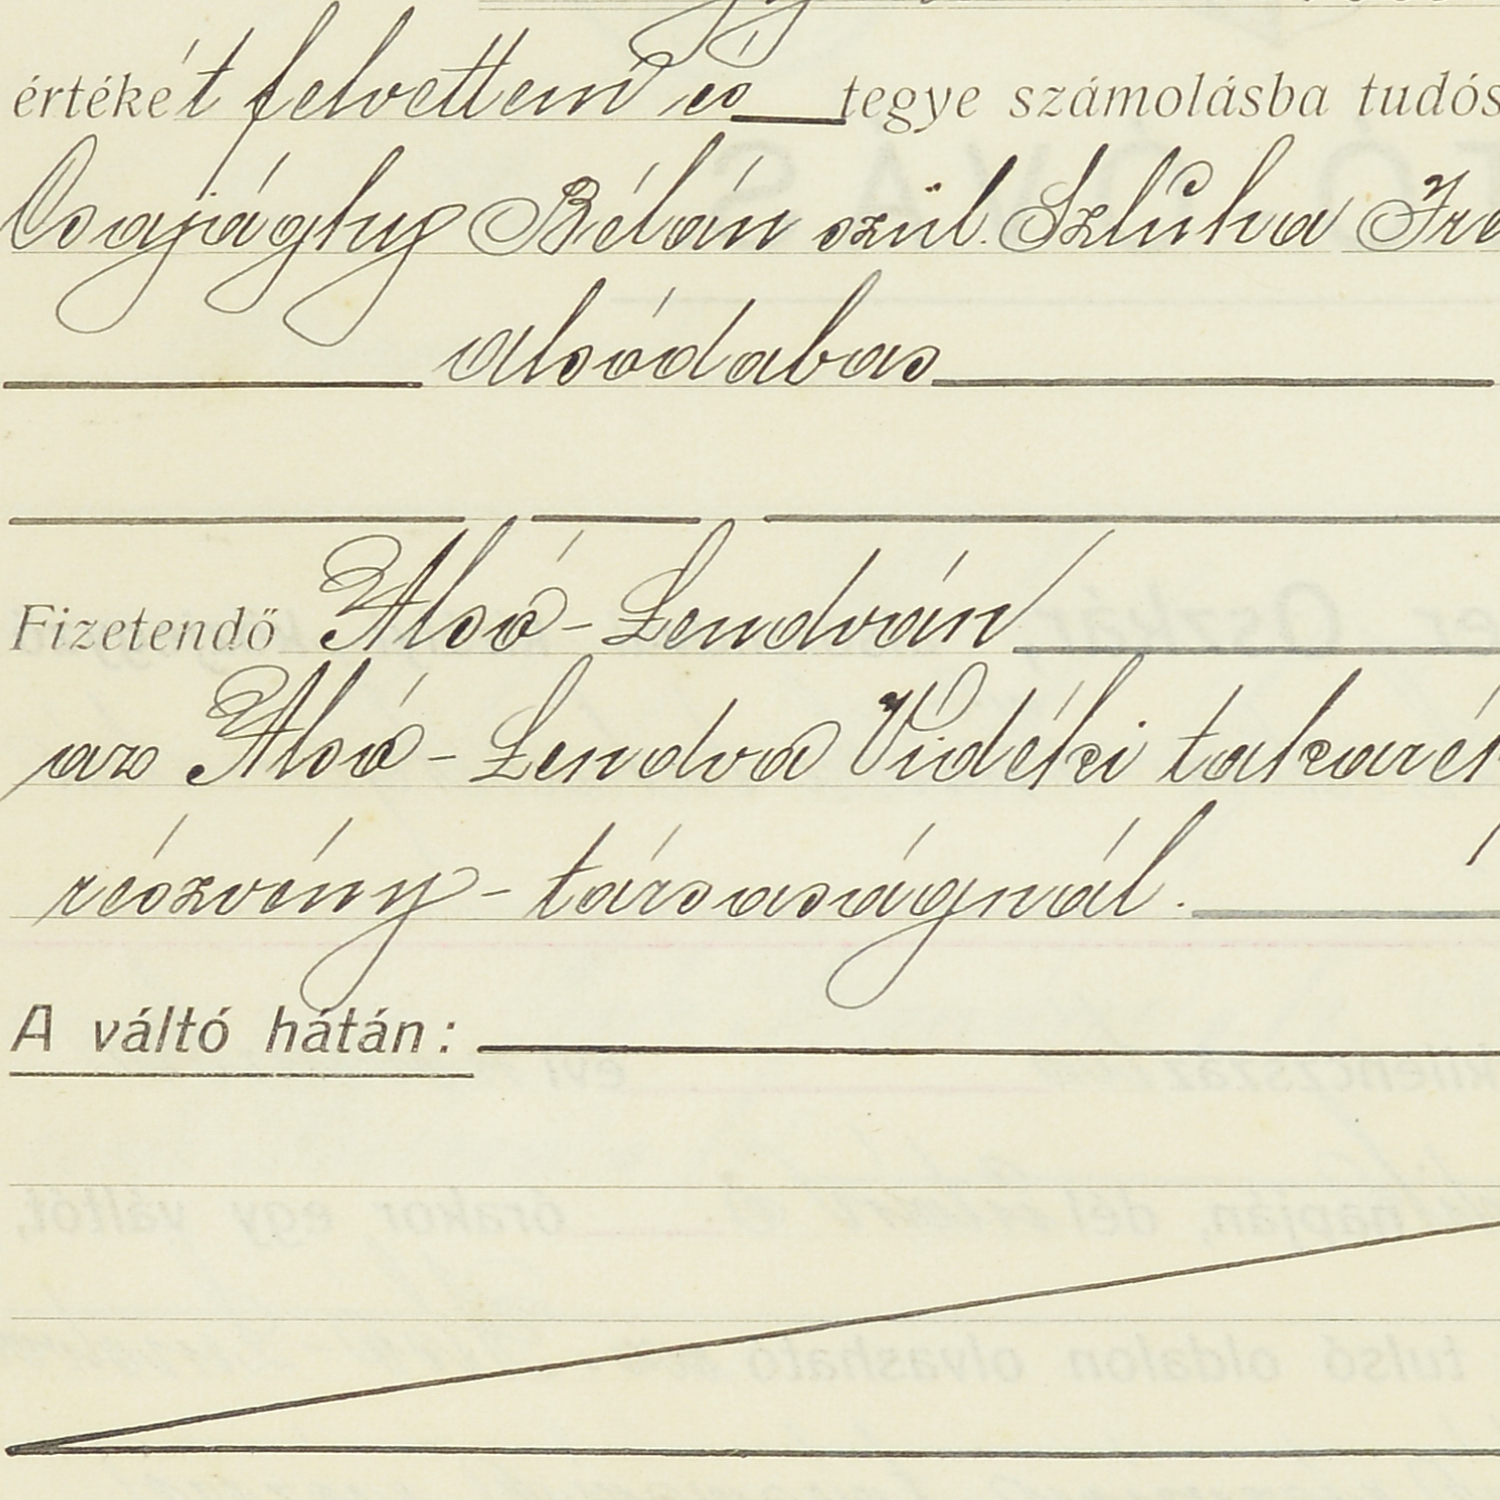 értékét felvettem és tegye számolásba tudós
Csajághy Béláné szül. Szluha Ire
alsódabas
Fizetendő Alsó-Lendván
az Alsó-Lendva Vidéki takarék
részvény-társaságnál.
A váltó hátán: